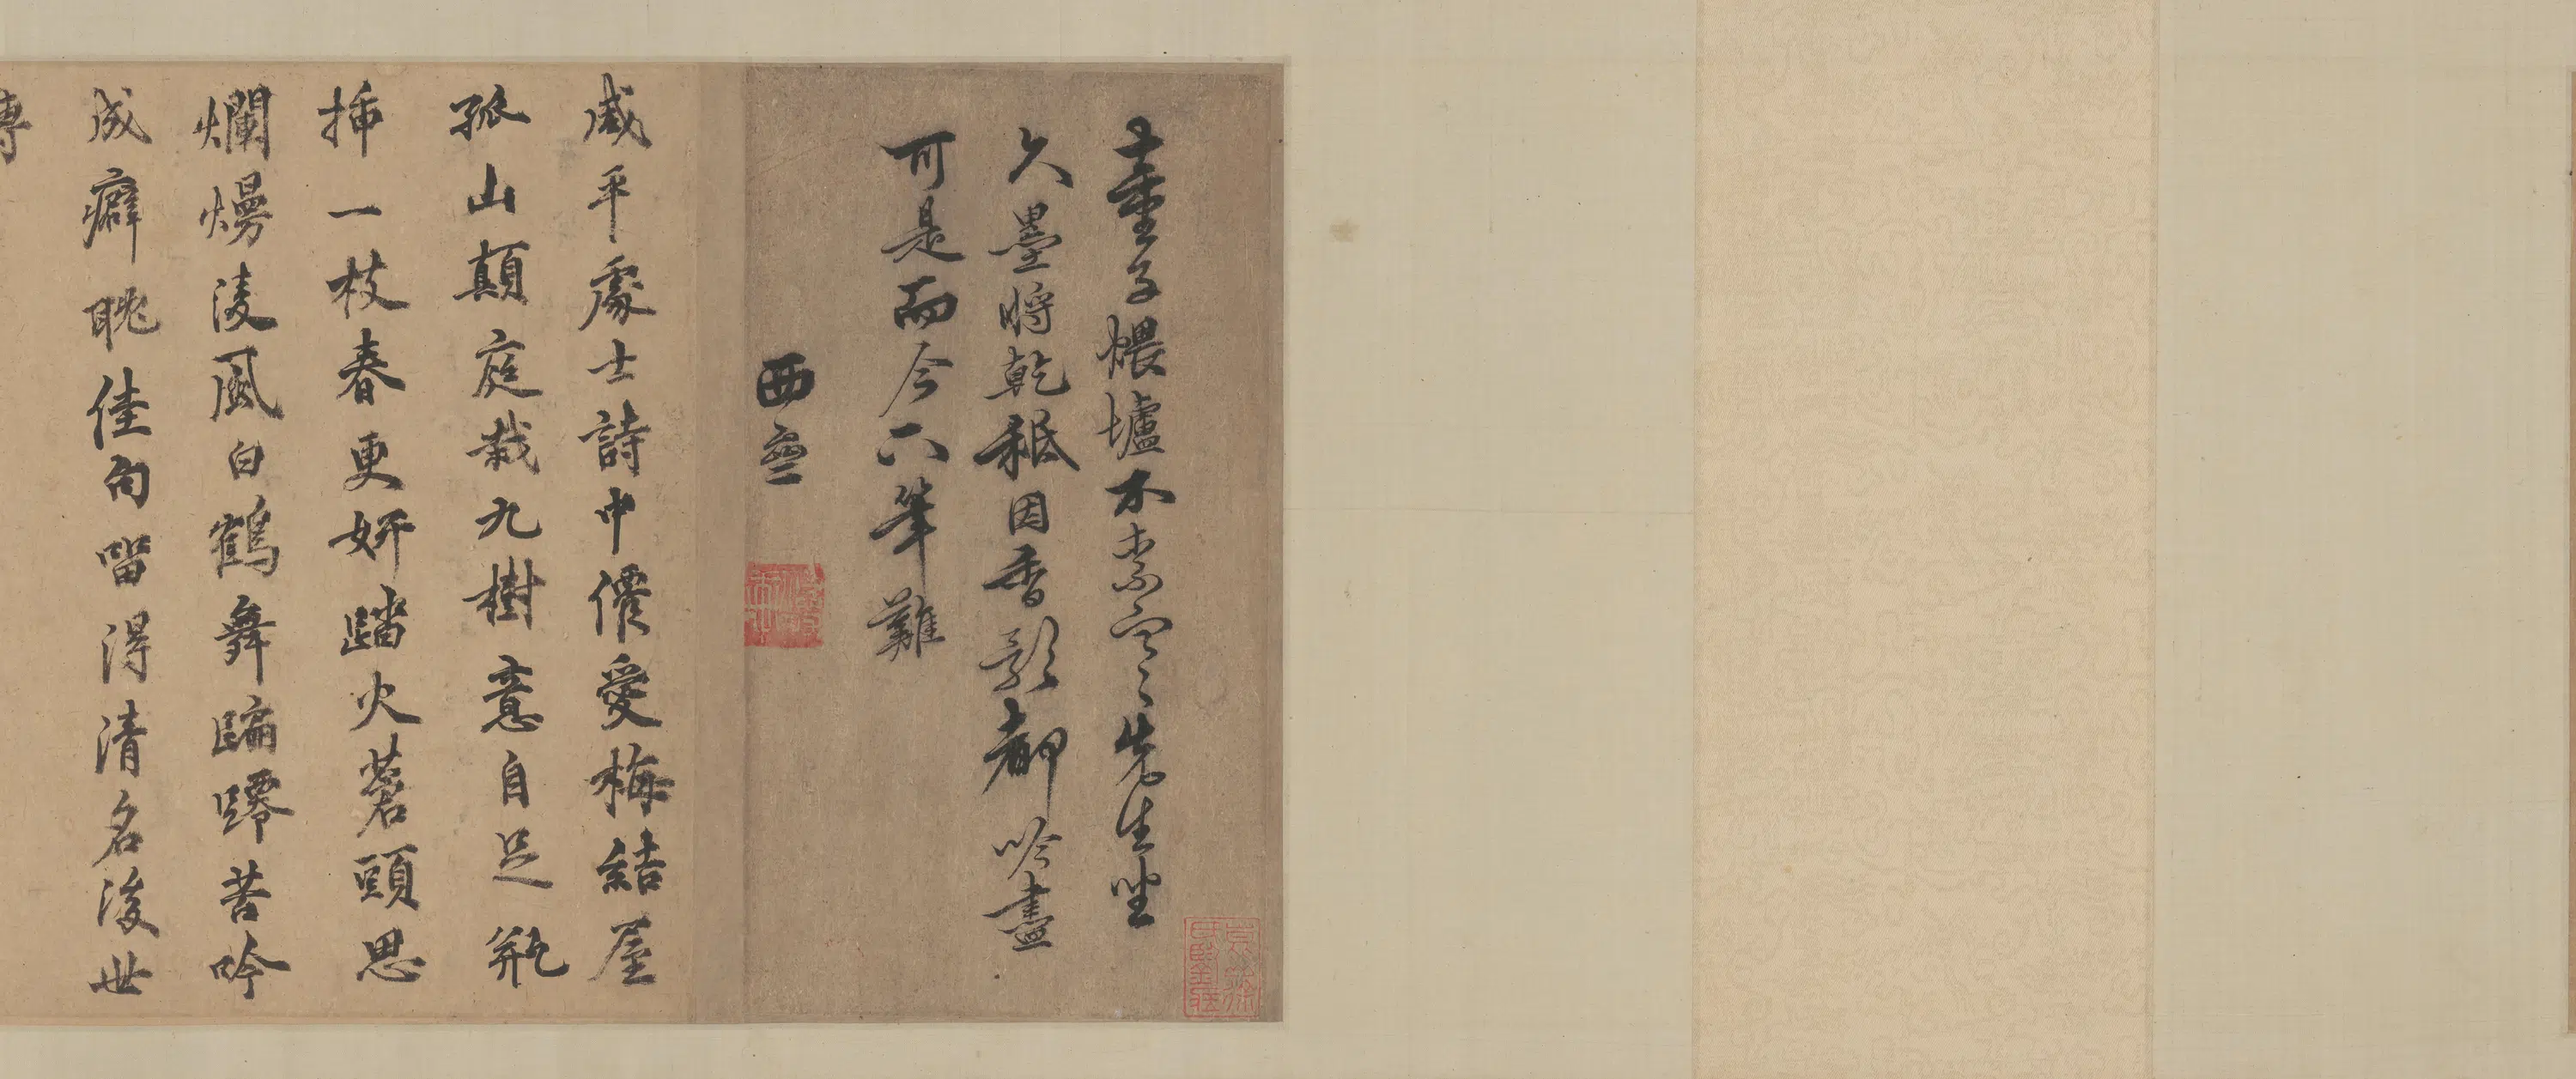 童子煨壚不索寒先生坐
久墨將乾秖因香影都吟盡
可是而今下筆難
西齋
咸平處士詩中僊愛梅結屋
孤山顛庭栽九樹意自足瓶
插一枝春更妍踏火蒼頭思
爛熳凌風白鶴舞蹁躚苦吟
成癖耽佳句留得清名後世
傳